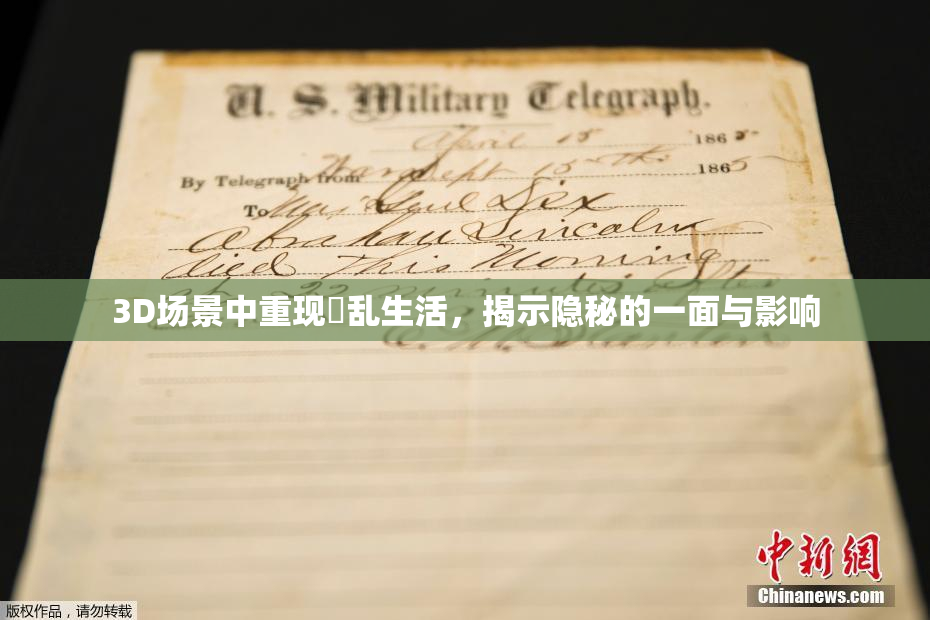 U. S. Military Telegraph.
April 15 1865
By Telegraph from War Dept 15th 1865
To Maj Genl Dix
Abraham Lincoln
died This Morning
at 22 minutes after
3D场景中重现乱生活，揭示隐秘的一面与影响
E. M. Stanton
中新网
Chinanews.com
版权作品，请勿转载